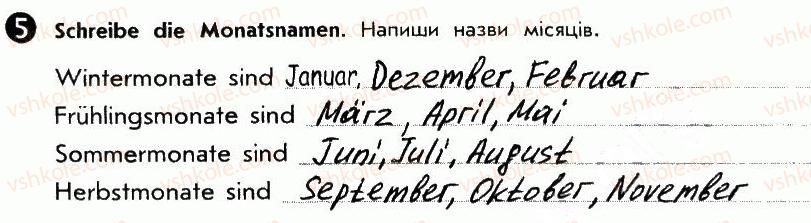 5 Schreibe die Monatsnamen. Напиши назви місяців.
Wintermonate sind Januar, Dezember, Februar
Frühlingsmonate sind März, April, Mai
Sommermonate sind Juni, Juli, August
Herbstmonate sind September, Oktober, November